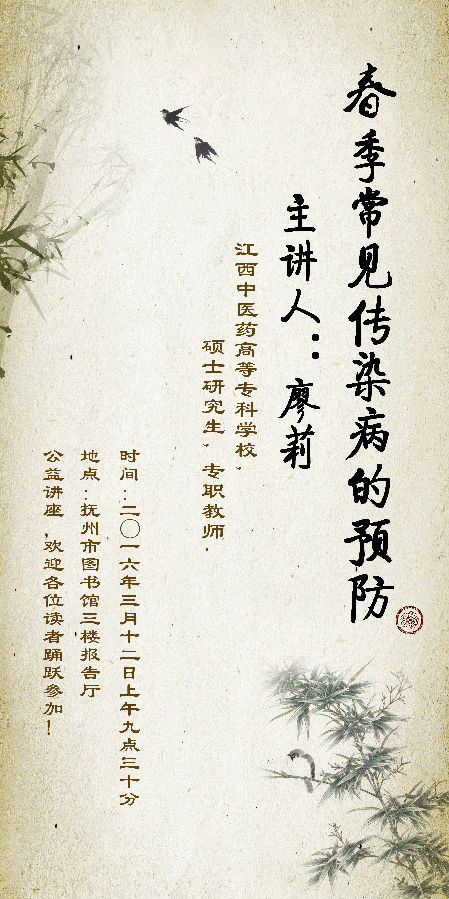 春季常见传染病的预防
主讲人：廖莉
江西中医药高等专科学校，
硕士研究生，专职教师．
时间：二〇一六年三月十二日上午九点三十分
地点：抚州市图书馆三楼报告厅
公益讲座，欢迎各位读者踊跃参加！